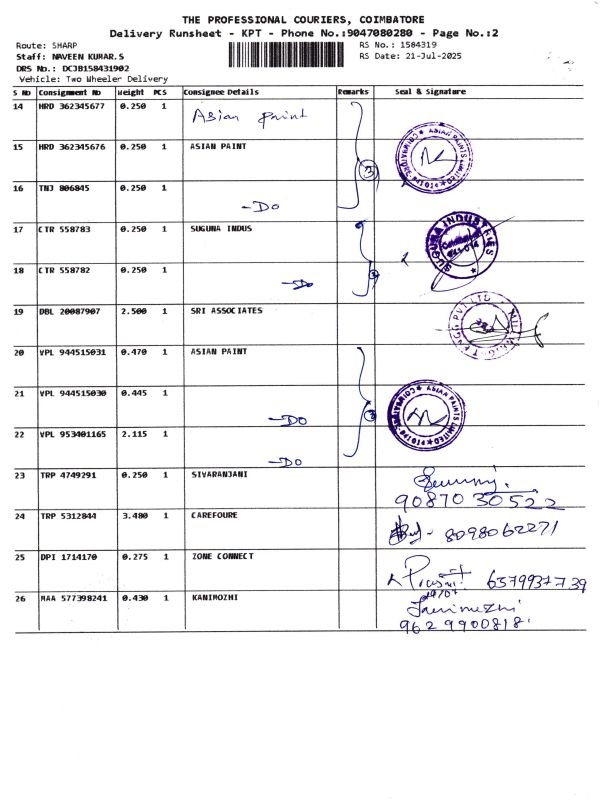 THE PROFESSIONAL COURIERS, COIMBATORE
Delivery Runsheet - KPT - Phone No.:9047080280 - Page No.:2
Route: SHARP RS No.: 1584319
Staff: NAVEEN KUMAR.S RS Date: 21-Jul-2025
DRS No.: DCJB158431902
Vehicle: Two Wheeler Delivery
S No Consignment No Weight PCS Consignee Details Remarks Seal & Signature
14 HRD 362345677 0.250 1 Asian paint
15 HRD 362345676 0.250 1 ASIAN PAINT
ASIAN PAINTS LIMITED
3
16 TNJ 806845 0.250 1 -Do
17 CTR 558783 0.250 1 SUGUNA INDUS
SUGUNA INDUSTRIES
18 CTR 558782 0.250 1 -Do
19 DBL 20087907 2.500 1 SRI ASSOCIATES
20 VPL 944515031 0.470 1 ASIAN PAINT
21 VPL 944515030 0.445 1 -Do
ASIAN PAINTS LIMITED
3
22 VPL 953401165 2.115 1 -Do
23 TRP 4749291 0.250 1 SIVARANJANI
90870 30522
24 TRP 5312844 3.480 1 CAREFOURE 8098062271
25 DPI 1714170 0.275 1 ZONE CONNECT 6379937739
26 MAA 577398241 0.430 1 KANIMOZHI
9629900818